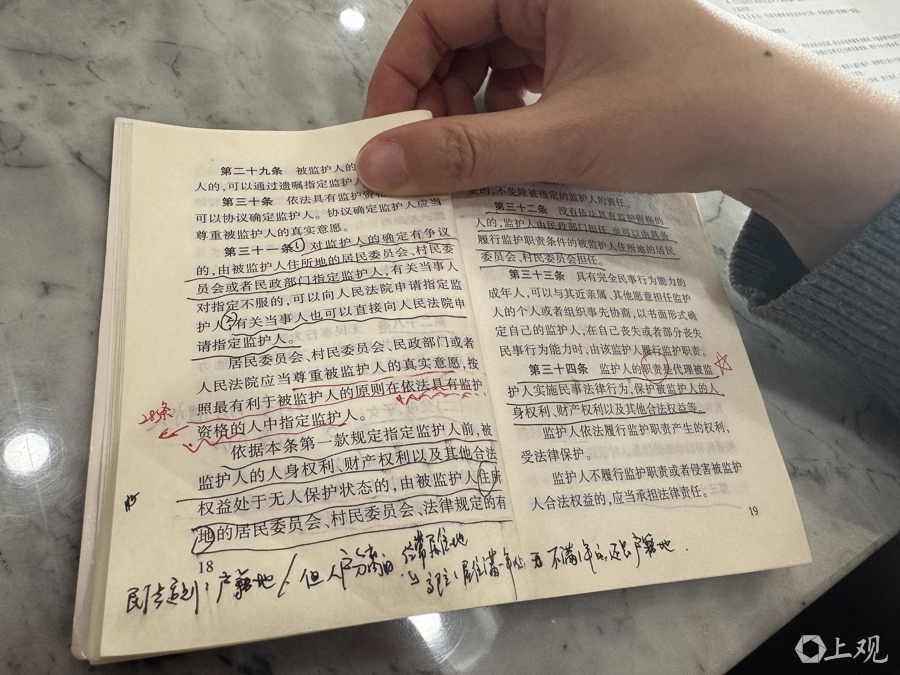 第二十九条　被监护人的
人的,可以通过遗嘱指定监护人
第三十条　依法具有监护资格
可以协议确定监护人。协议确定监护人应当
尊重被监护人的真实意愿。
第三十一条①对监护人的确定有争议
的,由被监护人住所地的居民委员会、村民委
员会或者民政部门指定监护人,有关当事人
对指定不服的,可以向人民法院申请指定监
护人②有关当事人也可以直接向人民法院申
请指定监护人。
居民委员会、村民委员会、民政部门或者
人民法院应当尊重被监护人的真实意愿,按
照最有利于被监护人的原则在依法具有监护
28条
资格的人中指定监护人。
依据本条第一款规定指定监护人前,被
监护人的人身权利、财产权利以及其他合法
权益处于无人保护状态的,由被监护人住所
地的居民委员会、村民委员会、法律规定的有
18
户籍地 但人户分离的 经常居住地
不满1年的,还是户籍地.
更的,不免除被指定的监护人的责任。
第三十二条　没有依法具有监护资格的
人的,监护人由民政部门担任,也可以由具备
履行监护职责条件的被监护人住所地的居民
委员会、村民委员会担任。
第三十三条　具有完全民事行为能力的
成年人,可以与其近亲属、其他愿意担任监护
人的个人或者组织事先协商,以书面形式确
定自己的监护人,在自己丧失或者部分丧失
民事行为能力时,由该监护人履行监护职责。
第三十四条　监护人的职责是代理被监
护人实施民事法律行为,保护被监护人的人
身权利、财产权利以及其他合法权益等。
监护人依法履行监护职责产生的权利,
受法律保护。
监护人不履行监护职责或者侵害被监护
人合法权益的,应当承担法律责任。
19
上观